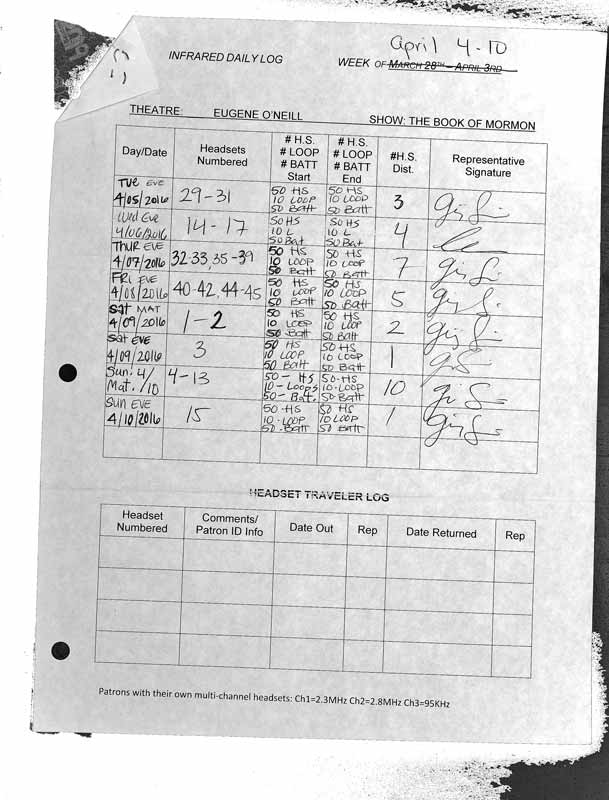 April 4-10
INFRARED DAILY LOG
WEEK OF MARCH 28TH – APRIL 3RD
THEATRE: EUGENE O'NEILL SHOW: THE BOOK OF MORMON
Day/Date Headsets Numbered # H.S. # LOOP # BATT Start # H.S. # LOOP # BATT End #H.S. Dist. Representative Signature
TUE EVE 4/05/2016 29-31 50 HS 10 LOOP 50 Batt 50 HS 10 LOOP 50 Batt 3
Wed Eve 4/06/2016 14-17 50 HS 10 L 50 Bat 50 HS 10 L 50 Batt 4
THUR EVE 4/07/2016 32-33, 35-39 50 HS 10 LOOP 50 Batt 50 HS 10 LOOP 50 Batt 7
FRI EVE 4/08/2016 40-42, 44-45 50 HS 10 LOOP 50 Batt 50 HS 10 LOOP 50 Batt 5
Sat MAT 4/09/2016 1-2 50 HS 10 LOOP 50 Batt 50 HS 10 LOOP 50 Batt 2
Sat EVE 4/09/2016 3 50 HS 10 LOOP 50 Batt 50 HS 10 LOOP 50 Batt 1
Sun. 4/ Mat. /10 4-13 50- HS 10-Loops 50- Bat. 50-HS 10-LOOP 50 Batt 10
SUN EVE 4/10/2016 15 50-HS 10-LOOP 50-Batt 50 HS 10 LOOP 50 Batt 1
HEADSET TRAVELER LOG
Headset Numbered Comments/ Patron ID Info Date Out Rep Date Returned Rep
Patrons with their own multi-channel headsets: Ch1=2.3MHz Ch2=2.8MHz Ch3=95KHz